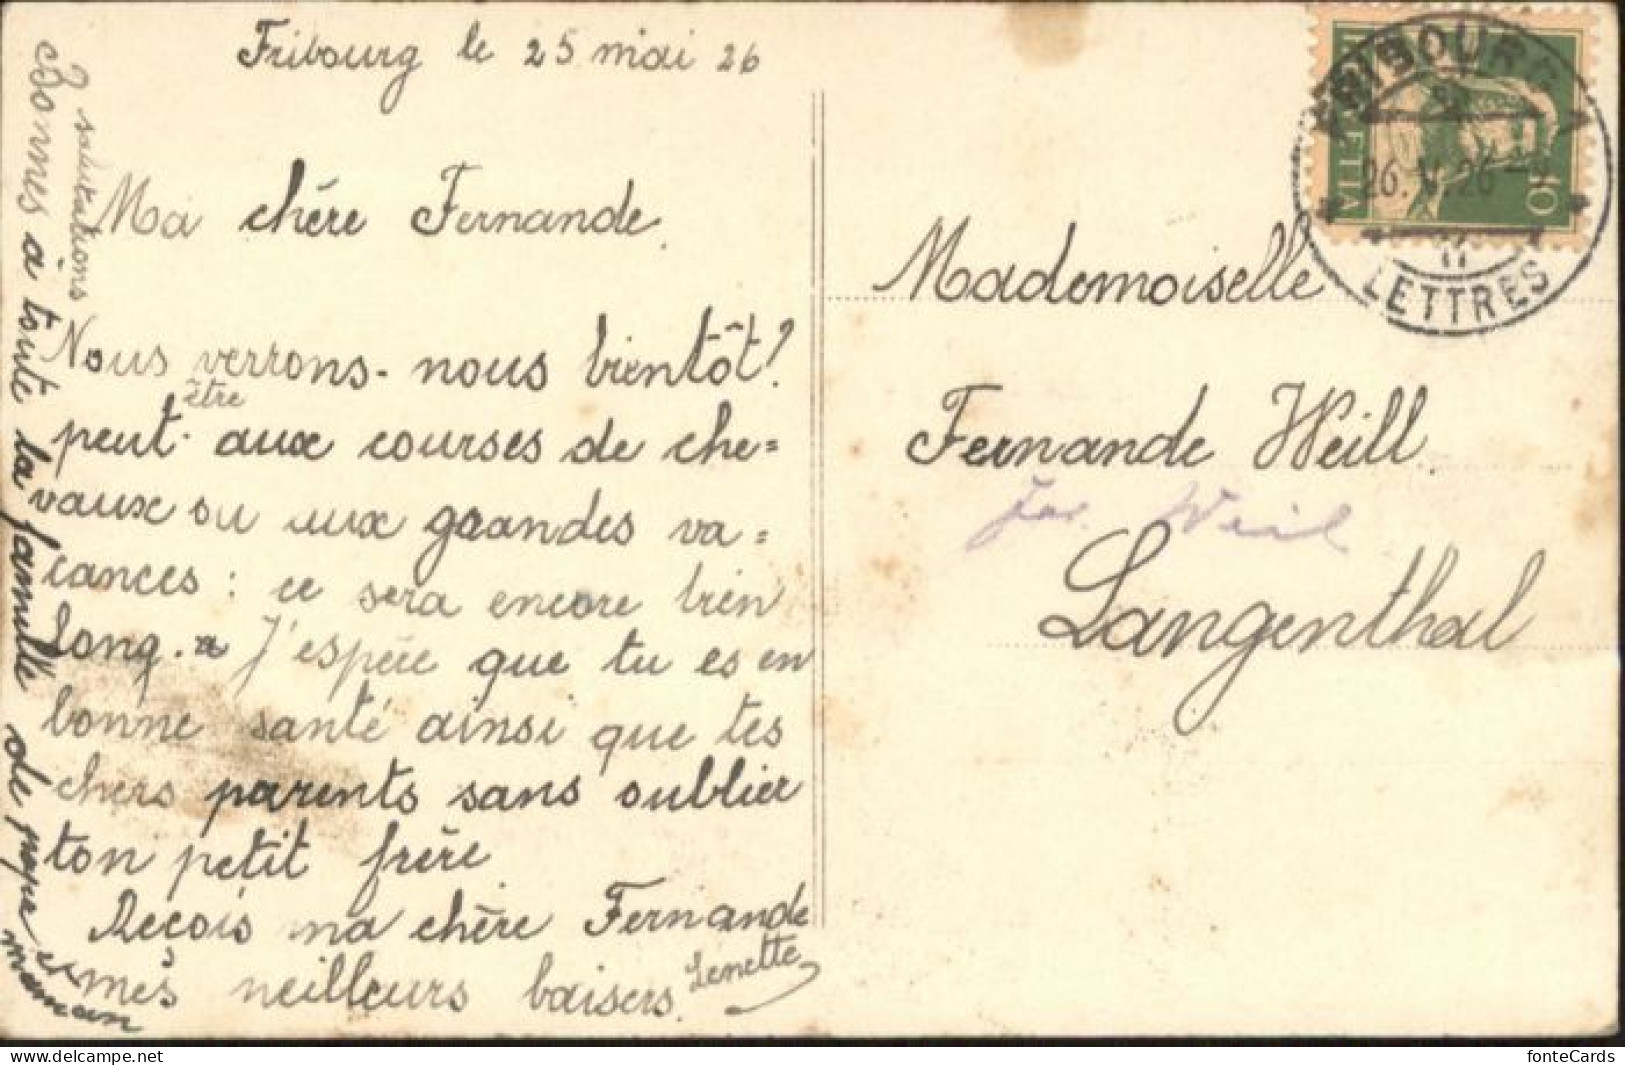 Fribourg le 25 mai 26
Ma chère Fernande.
Nous verrons-nous bientôt?
peut-être aux courses de che=
vaux ou aux grandes va=
cances : ce sera encore bien
long. J'espère que tu es en
bonne santé ainsi que tes
chers parents sans oublier
ton petit frère
Reçois ma chère Fernande
mes meilleurs baisers.
Bonnes salutations à toute la famille de papa et
maman
Mademoiselle
Fernande Weill.
Weil
Langenthal
FRIBOURG
26.V.26
LETTRES
HELVETIA
10
fonteCards